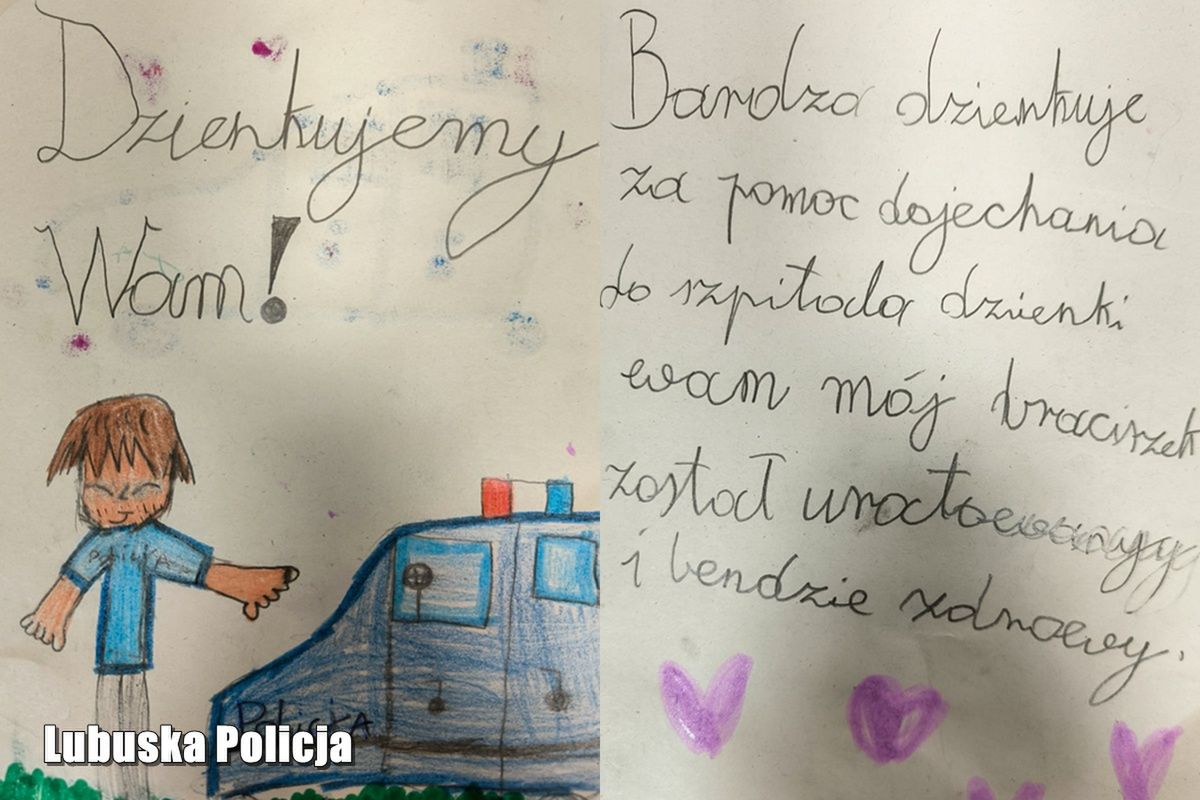 Dzienkujemy
Wam!
POLICJA
Policja
Lubuska Policja
Bardzo dzienkuje
za pomoc dojechania
do szpitala dzienki
wam mój braciszek
został uratowany
i bendzie zdrowy.